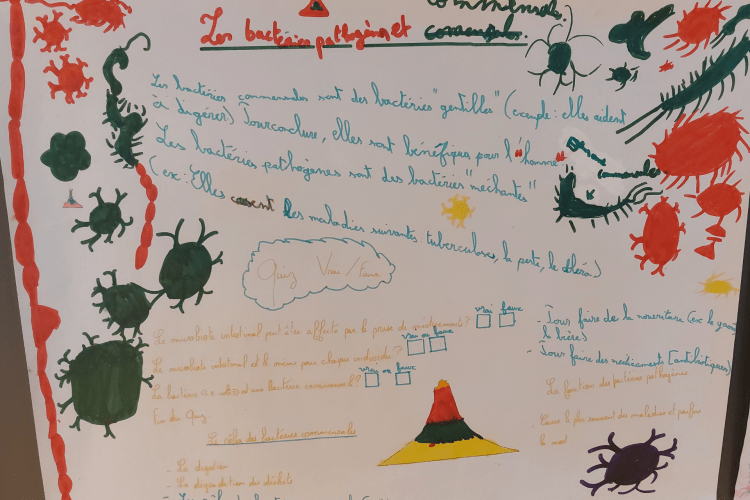 commensales.
Les bactéries pathogènes et commensales.
Les bactéries commensales sont des bactéries "gentilles" (exemple : elles aident
à digérer) Pour conclure, elles sont bénéfiques pour l'homme
Les bactéries pathogènes sont des bactéries "méchantes"
(ex: Elles causent les maladies suivantes : tuberculose, la peste, le choléra)
commensales
Quiz Vrai / Faux
Le microbiote intestinal peut être affecté par la prise de médicaments ?
vrai ou faux
Le microbiote intestinal est le même pour chaque individu ?
vrai ou faux
La bactérie est une bactérie commensale ?
vrai ou faux
Fin du Quiz
Le rôle des bactéries commensales
- La digestion
- La dégradation des déchets
- Pour faire de la nourriture (ex le yaourt
la bière)
- Pour faire des médicaments (antibiotiques)
La fonction des bactéries pathogènes
- Cause le plus souvent des maladies et parfois
la mort